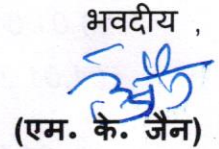 भवदीय ,
(एम. के. जैन)